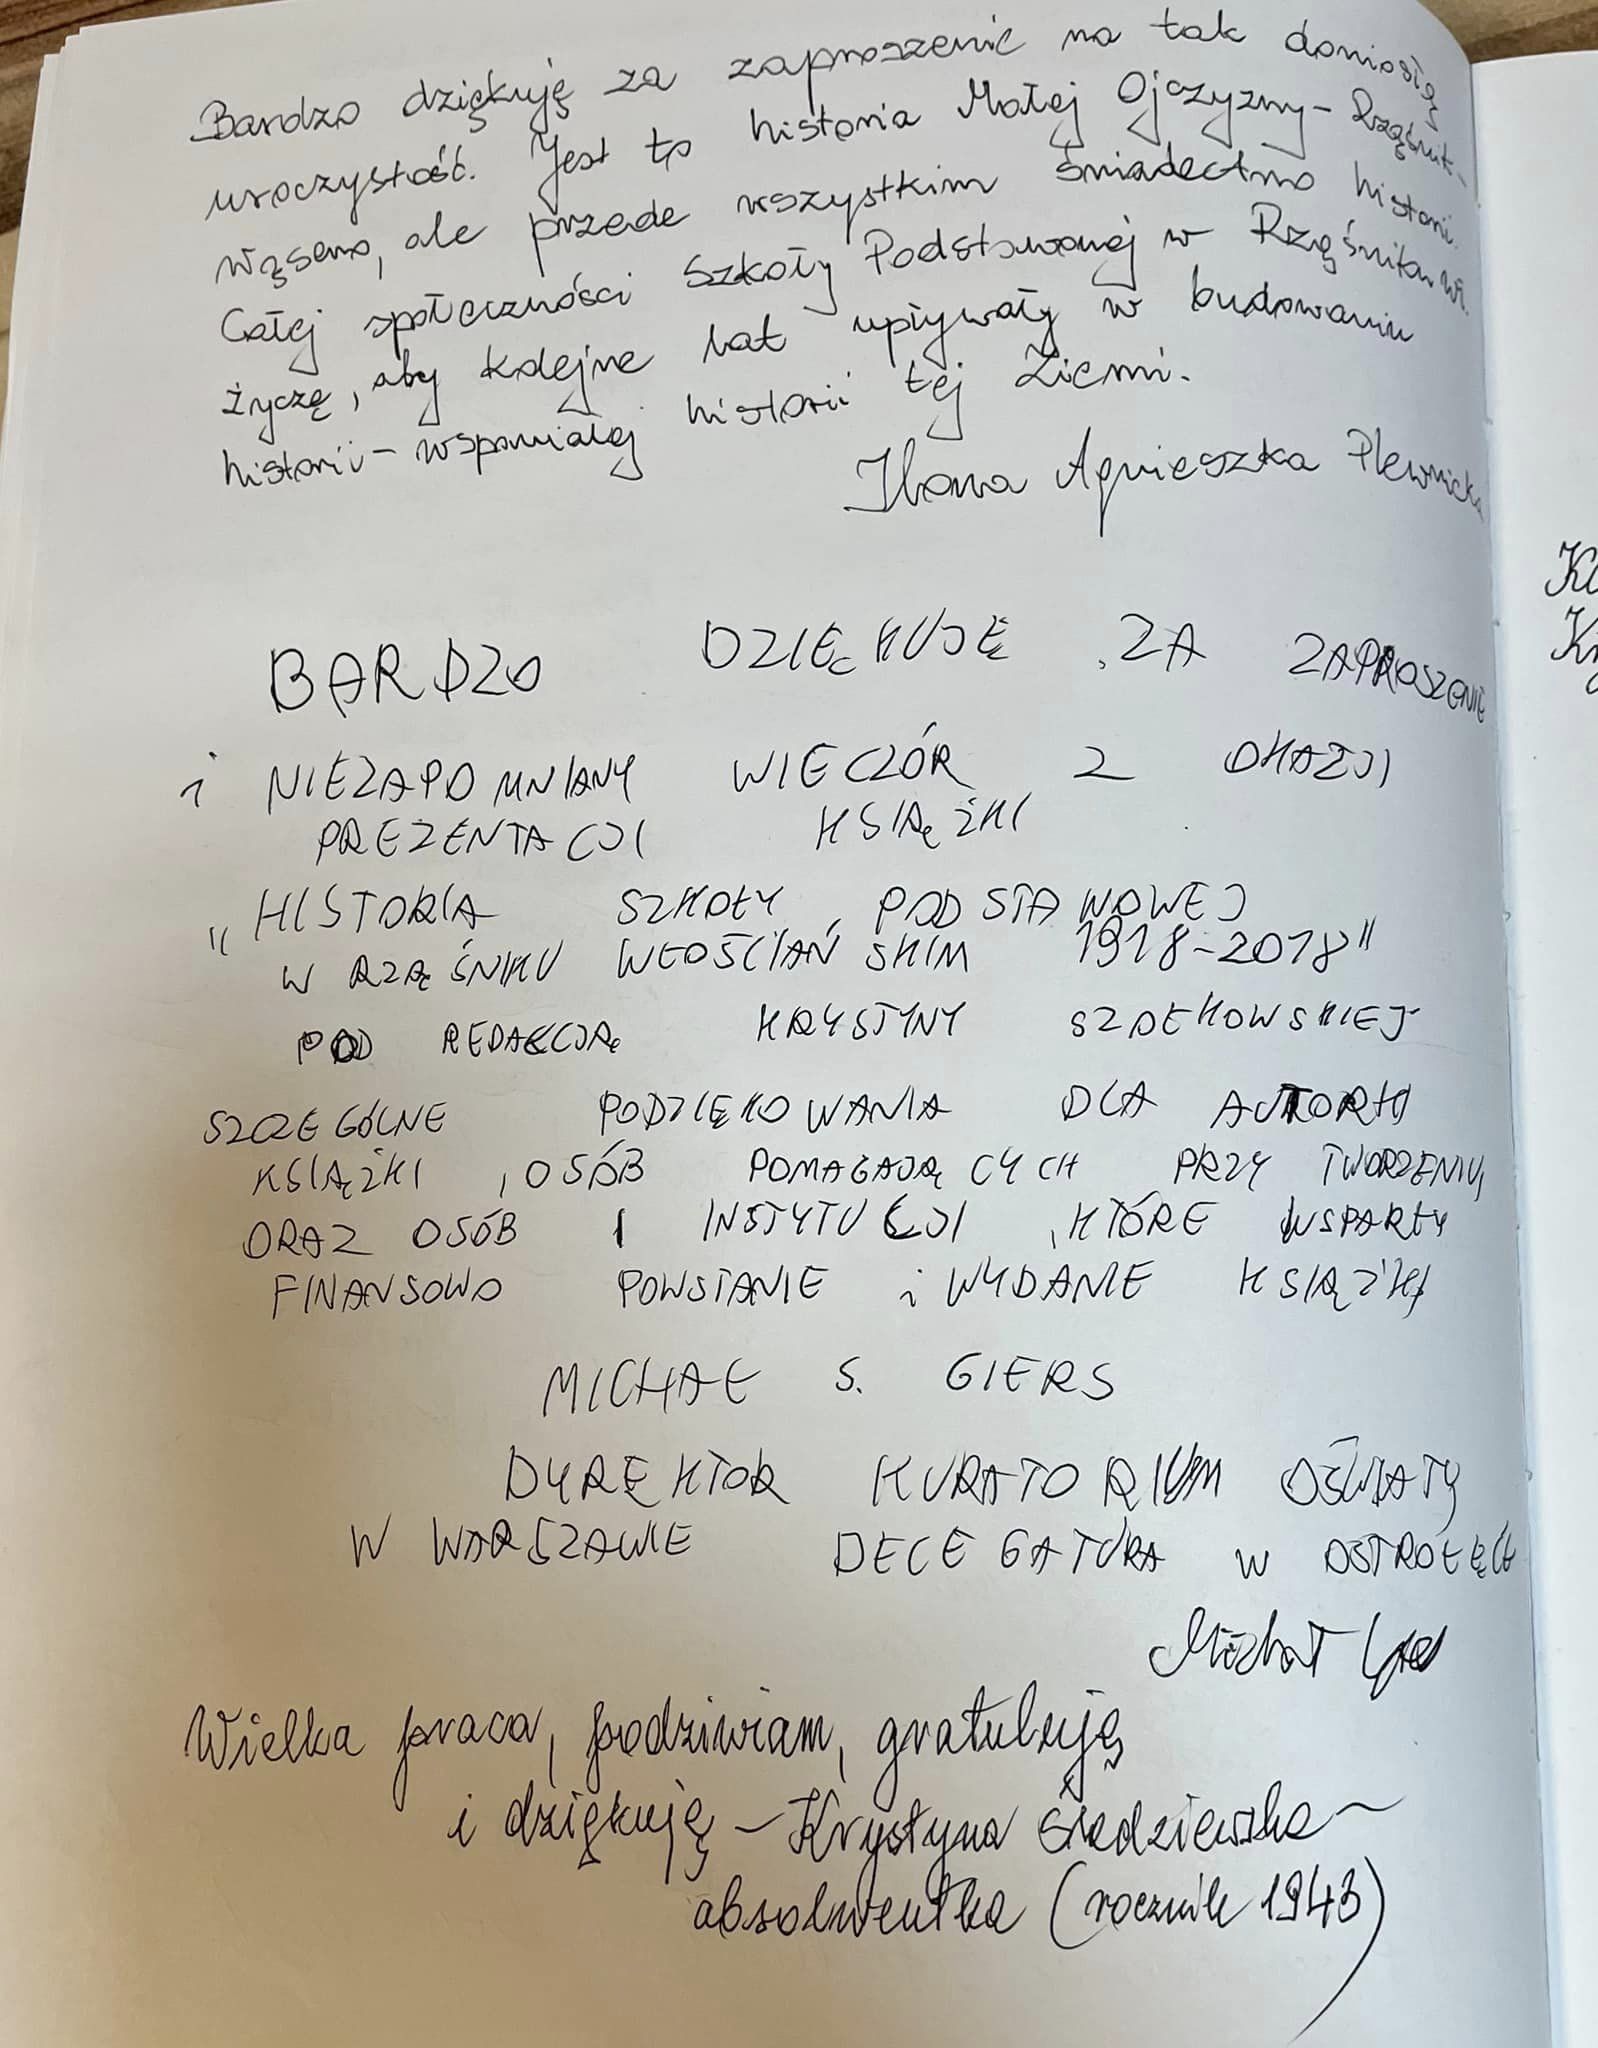 Bardzo dziękuję za zaproszenie na tak doniosłą
uroczystość. Jest to historia Małej Ojczyzny - Rząśnik -
Wąsewo, ale przede wszystkim świadectwo historii.
Całej społeczności Szkoły Podstawowej w Rząśniku Wł.
życzę, aby kolejne lat upływały w budowaniu
historii - wspaniałej historii tej Ziemi.
Ilona Agnieszka Plewnicka
BARDZO DZIĘKUJĘ ZA ZAPROSZENIE
i NIEZAPOMNIANY WIECZÓR Z OKAZJI
PREZENTACJI KSIĄŻKI
"HISTORIA SZKOŁY PODSTAWOWEJ
W RZĄŚNIKU WŁOŚCIAŃSKIM 1918-2018"
POD REDAKCJĄ KRYSTYNY SZDEKOWSKIEJ
SZCZEGÓLNE PODZIĘKOWANIA DLA AUTORKI
KSIĄŻKI, OSÓB POMAGAJĄCYCH PRZY TWORZENIU
ORAZ OSÓB I INSTYTUCJI, KTÓRE WSPARŁY
FINANSOWO POWSTANIE i WYDANIE KSIĄŻKI
MICHAŁ S. GIERS
DYREKTOR KURATORIUM OŚWIATY
W WARSZAWIE DELEGATURA W OSTROŁĘCE
Michał
Wielka praca, podziwiam, gratuluję
i dziękuję - Krystyna Siedziewska -
absolwentka (rocznik 1943)
Kr